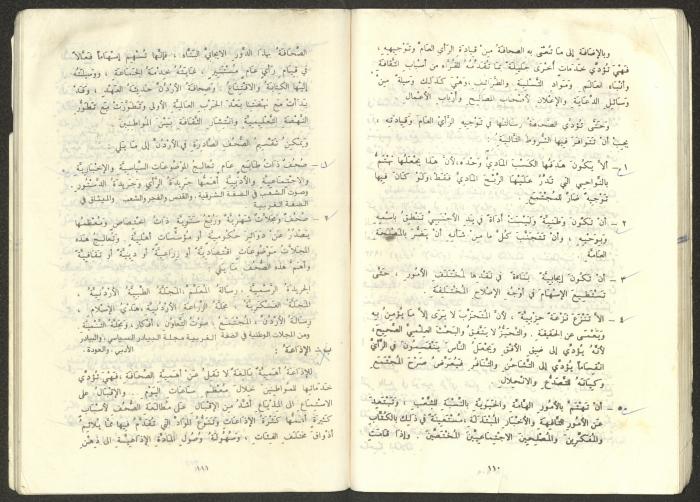 وبالإضافة إلى ما تُعنى به الصحافة من قيادة الرأي العام وتوجيهه ،
فهي تؤدي خدمات أخرى جليلة بما تقدمه للقراء من أسباب الثقافة
وأنباء العالم ومواد التسلية والطرائف ، وهي كذلك وسيلة من
وسائل الدعاية والإعلان لأصحاب المصالح وأرباب الأعمال
وحتى تؤدي الصحافة رسالتها في توجيه الرأي العام وقيادته
يجب أن تتوافر فيها الشروط التالية :
١ - ألا يكون هدفها الكسب المادي وحده ، لأن هذا يجعلها تهتم
بالنواحي التي تدر عليها الربح المادي فقط ، ولو كان فيها
توجيه ضار للمجتمع
٢ - أن تكون وطنية وليست أداة في يد الأجنبي تنطق باسمه
وبوحيه ، وأن تتجنب كل ما من شأنه أن يضر بالمصلحة
العامة .
٣ - أن تكون إيجابية بناءة في نقدها لمختلف الأمور ، حتى
تستطيع الإسهام في أوجه الإصلاح المختلفة
٤ - ألا تنزع نزعة حزبية ، لأن المتحزب لا يرى إلا ما يؤمن به
ويتعصب عن الحقيقة . والتحيز لا يتفق والبحث العلمي الصحيح ،
لأنه يؤدي إلى ضيق الأفق ويجعل الناس ينقسمون في الرأي
انقساماً يؤدي إلى التشاحن والتنافر فيعرض صرح المجتمع
وكيانه للتصدع والانحلال
٥ - أن تهتم بالأمور الهامة والحيوية بالنسبة للشعب ، وتبتعد
عن الأمور التافهة والأخبار المبتذلة ، مستعينة في ذلك بالكتاب
والمفكرين والمصلحين الاجتماعيين المختصين . وإذا قامت
١١٠
الصحافة بهذا الدور الإيجابي البناء ، فإنها تسهم إسهاماً فعالاً
في قيام رأي عام مستنير ، غايته خدمة الجماعة ، ووسيلته
إليها الكتابة والاقتناع . وصحافة الأردن حديثة العهد ، وقد
بدأت مع نهضتنا بعد الحرب العالمية الأولى وتطورت مع تطور
النهضة التعليمية وانتشار الثقافة بين المواطنين .
ويمكن تقسيم الصحف الصادرة في الأردن إلى ما يلي
١ - صحف ذات طابع عام تعالج الموضوعات السياسية والإخبارية
والاجتماعية والأدبية أهمها جريدة الرأي وجريدة الدستور
وصوت الشعب في الضفة الشرقية ، والقدس والفجر والشعب والميثاق في
الضفة الغربية
٢ - صحف ومجلات شهرية وربع سنوية ذات اختصاص ومعظمها
يصدر عن دوائر حكومية أو مؤسسات أهلية . وتعالج هذه
المجلات موضوعات اقتصادية أو زراعية أو دينية أو ثقافية
وأهم هذه الصحف ما يلي
الجريدة الرسمية ، رسالة المعلم ، المجلة الطبية الأردنية ،
المجلة العسكرية ، مجلة الزراعة الأردنية ، هدي الإسلام ،
رسالة الأردن ، المجتمع ، صوت التعاون ، أفكار ، ومجلة التنمية
ومن المجلات الوطنية في الضفة الغربية مجلة البيادر السياسي ، والبيادر
الأدبي ، والعودة .
ب - الإذاعة :
للإذاعة أهمية بالغة لا تقل عن أهمية الصحافة ، فهي تؤدي
خدماتها للمواطنين خلال معظم ساعات اليوم . والإقبال على
الاستماع إلى المذياع أشد من الإقبال على مطالعة الصحف لأسباب
كثيرة أهمها كثرة الإذاعات وتنوع المواد التي تقدم فيها مما يلائم
أذواق مختلف الفئات ، وسهولة وصول المادة الإذاعية إلى ذهن
١١١